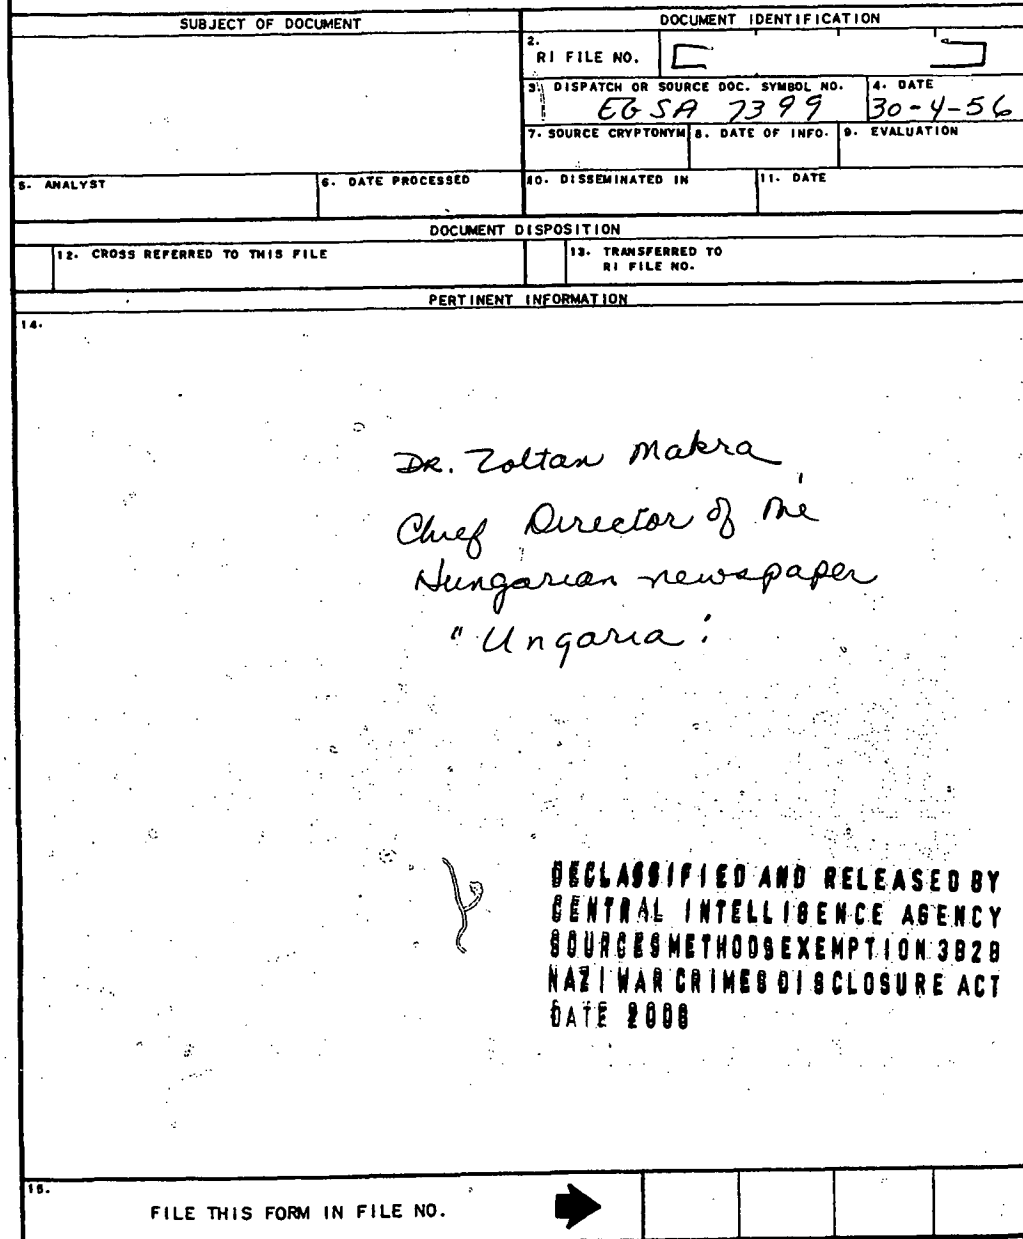 SUBJECT OF DOCUMENT
DOCUMENT IDENTIFICATION
2.
RI FILE NO.
3. DISPATCH OR SOURCE DOC. SYMBOL NO.
EGSA 7399
4. DATE
30-4-56
7. SOURCE CRYPTONYM
8. DATE OF INFO.
9. EVALUATION
5. ANALYST
6. DATE PROCESSED
10. DISSEMINATED IN
11. DATE
DOCUMENT DISPOSITION
12. CROSS REFERRED TO THIS FILE
13. TRANSFERRED TO
RI FILE NO.
PERTINENT INFORMATION
14.
DR. Zoltan Makra,
Chief Director of the
Hungarian newspaper
"Ungaria".
DECLASSIFIED AND RELEASED BY
CENTRAL INTELLIGENCE AGENCY
SOURCES METHODS EXEMPTION 3B2B
NAZI WAR CRIMES DISCLOSURE ACT
DATE
15.
FILE THIS FORM IN FILE NO.